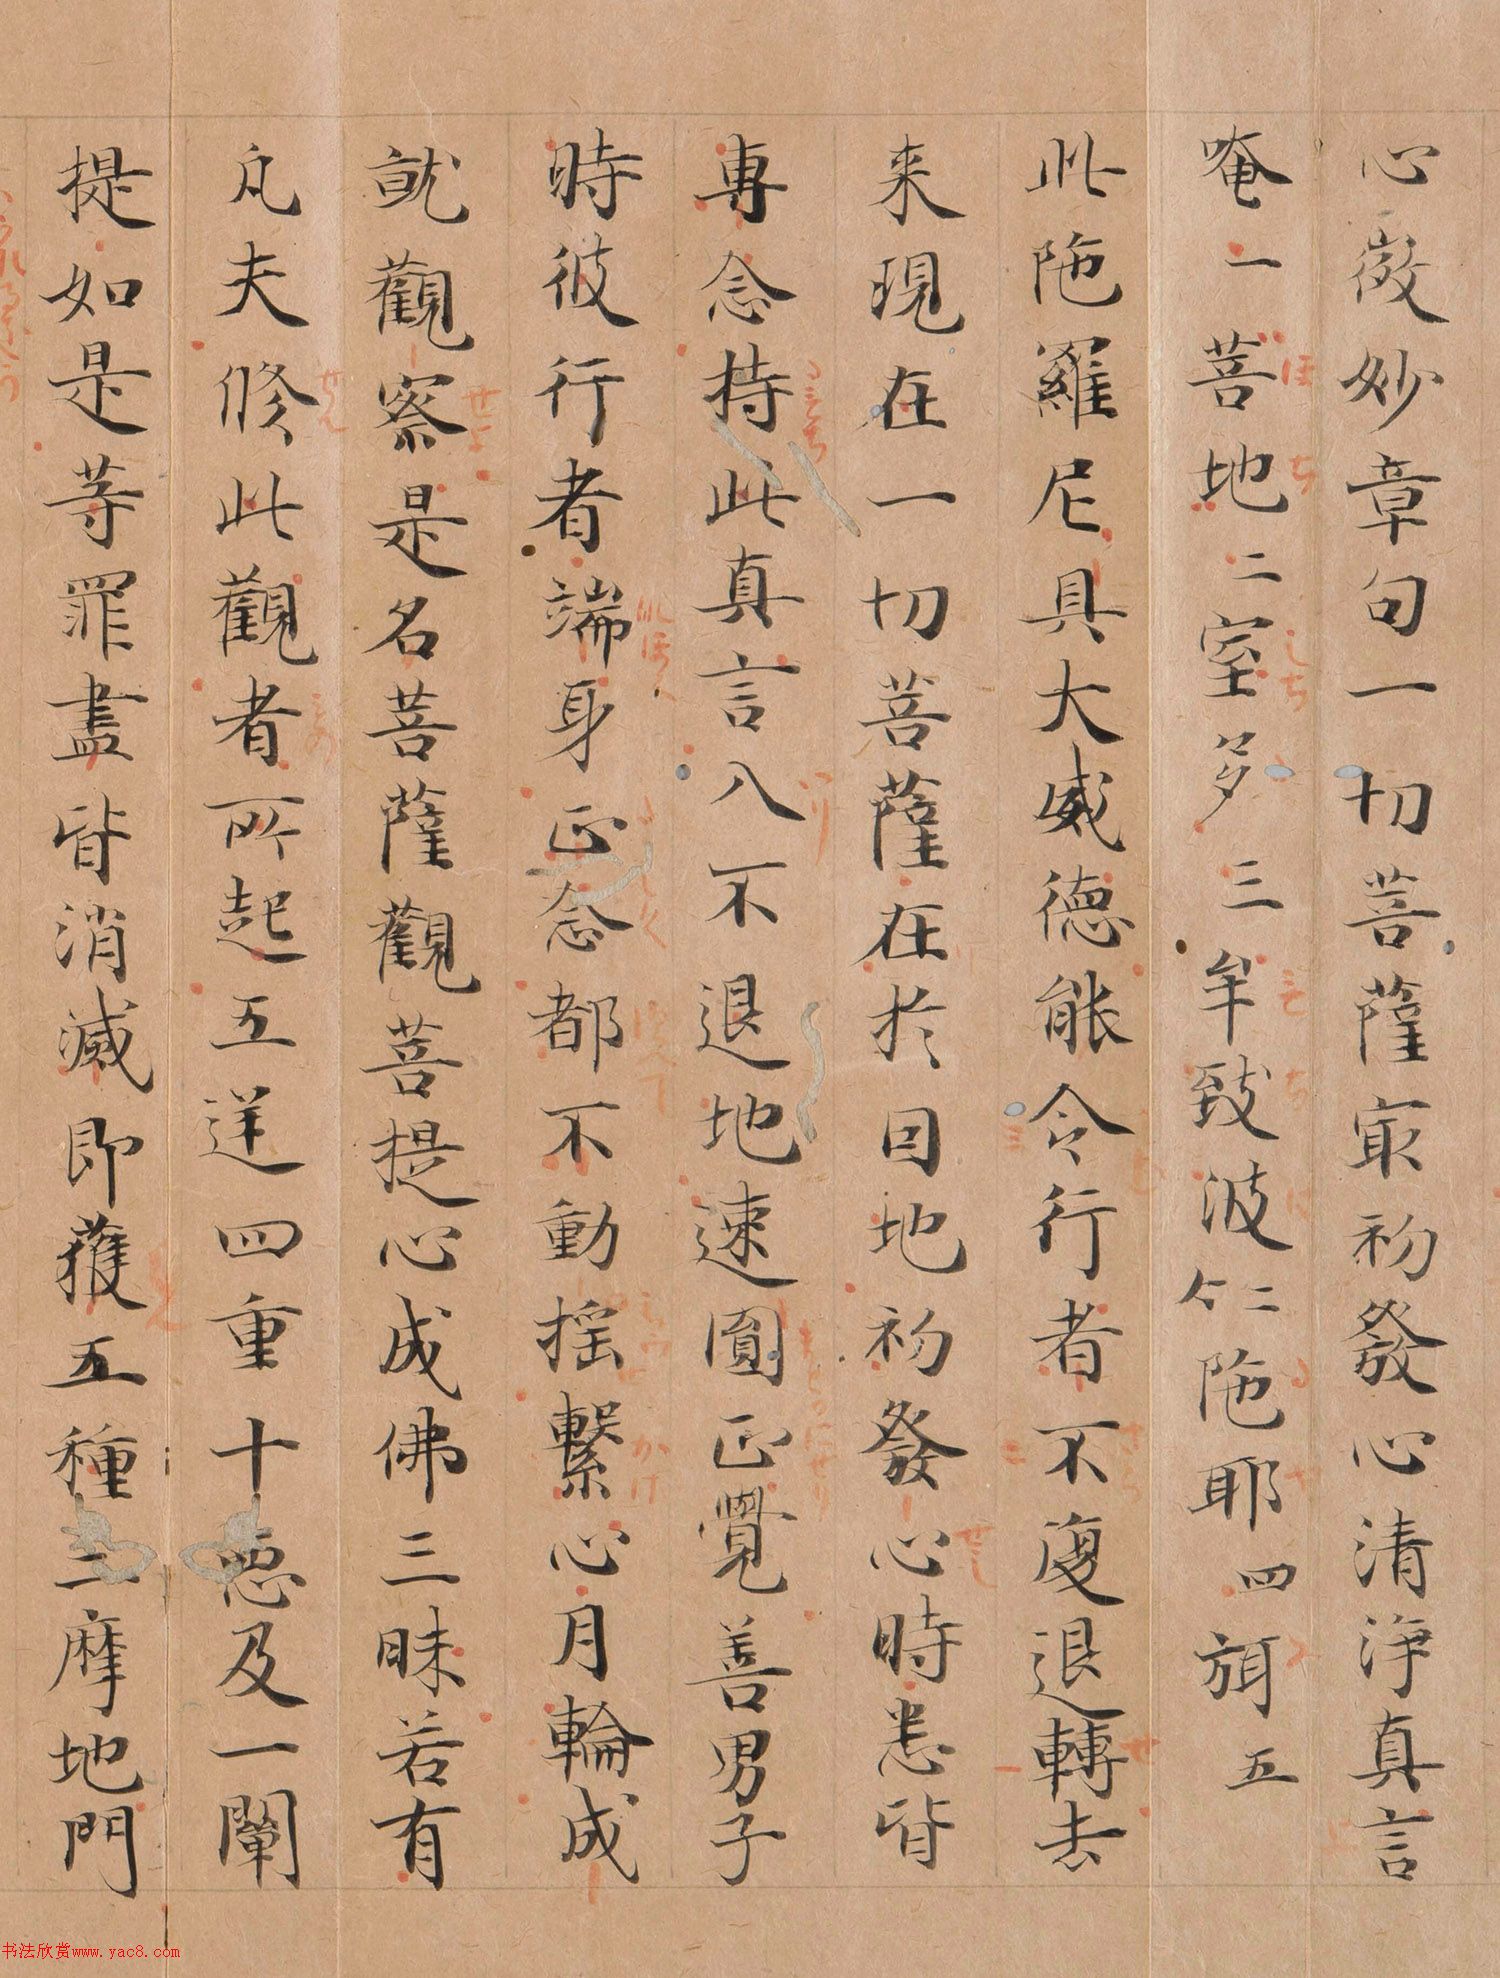 心微妙章句一切菩薩冣初發心清淨真言
唵一菩地二室多三牟致波仁二陁耶四䏈五
此陁羅尼具大威德能令行者不復退轉去
来現在一切菩薩在扵因地初發心時悉皆
専念持此真言入不退地速圎正覺善男子
時彼行者端身正念都不動揺繫心月輪成
就觀察是名菩薩觀菩提心成佛三昧若有
凡夫修此觀者所起五逆四重十惡及一闡
提如是等罪盡皆消滅即獲五種三摩地門
书法欣赏www.yac8.com